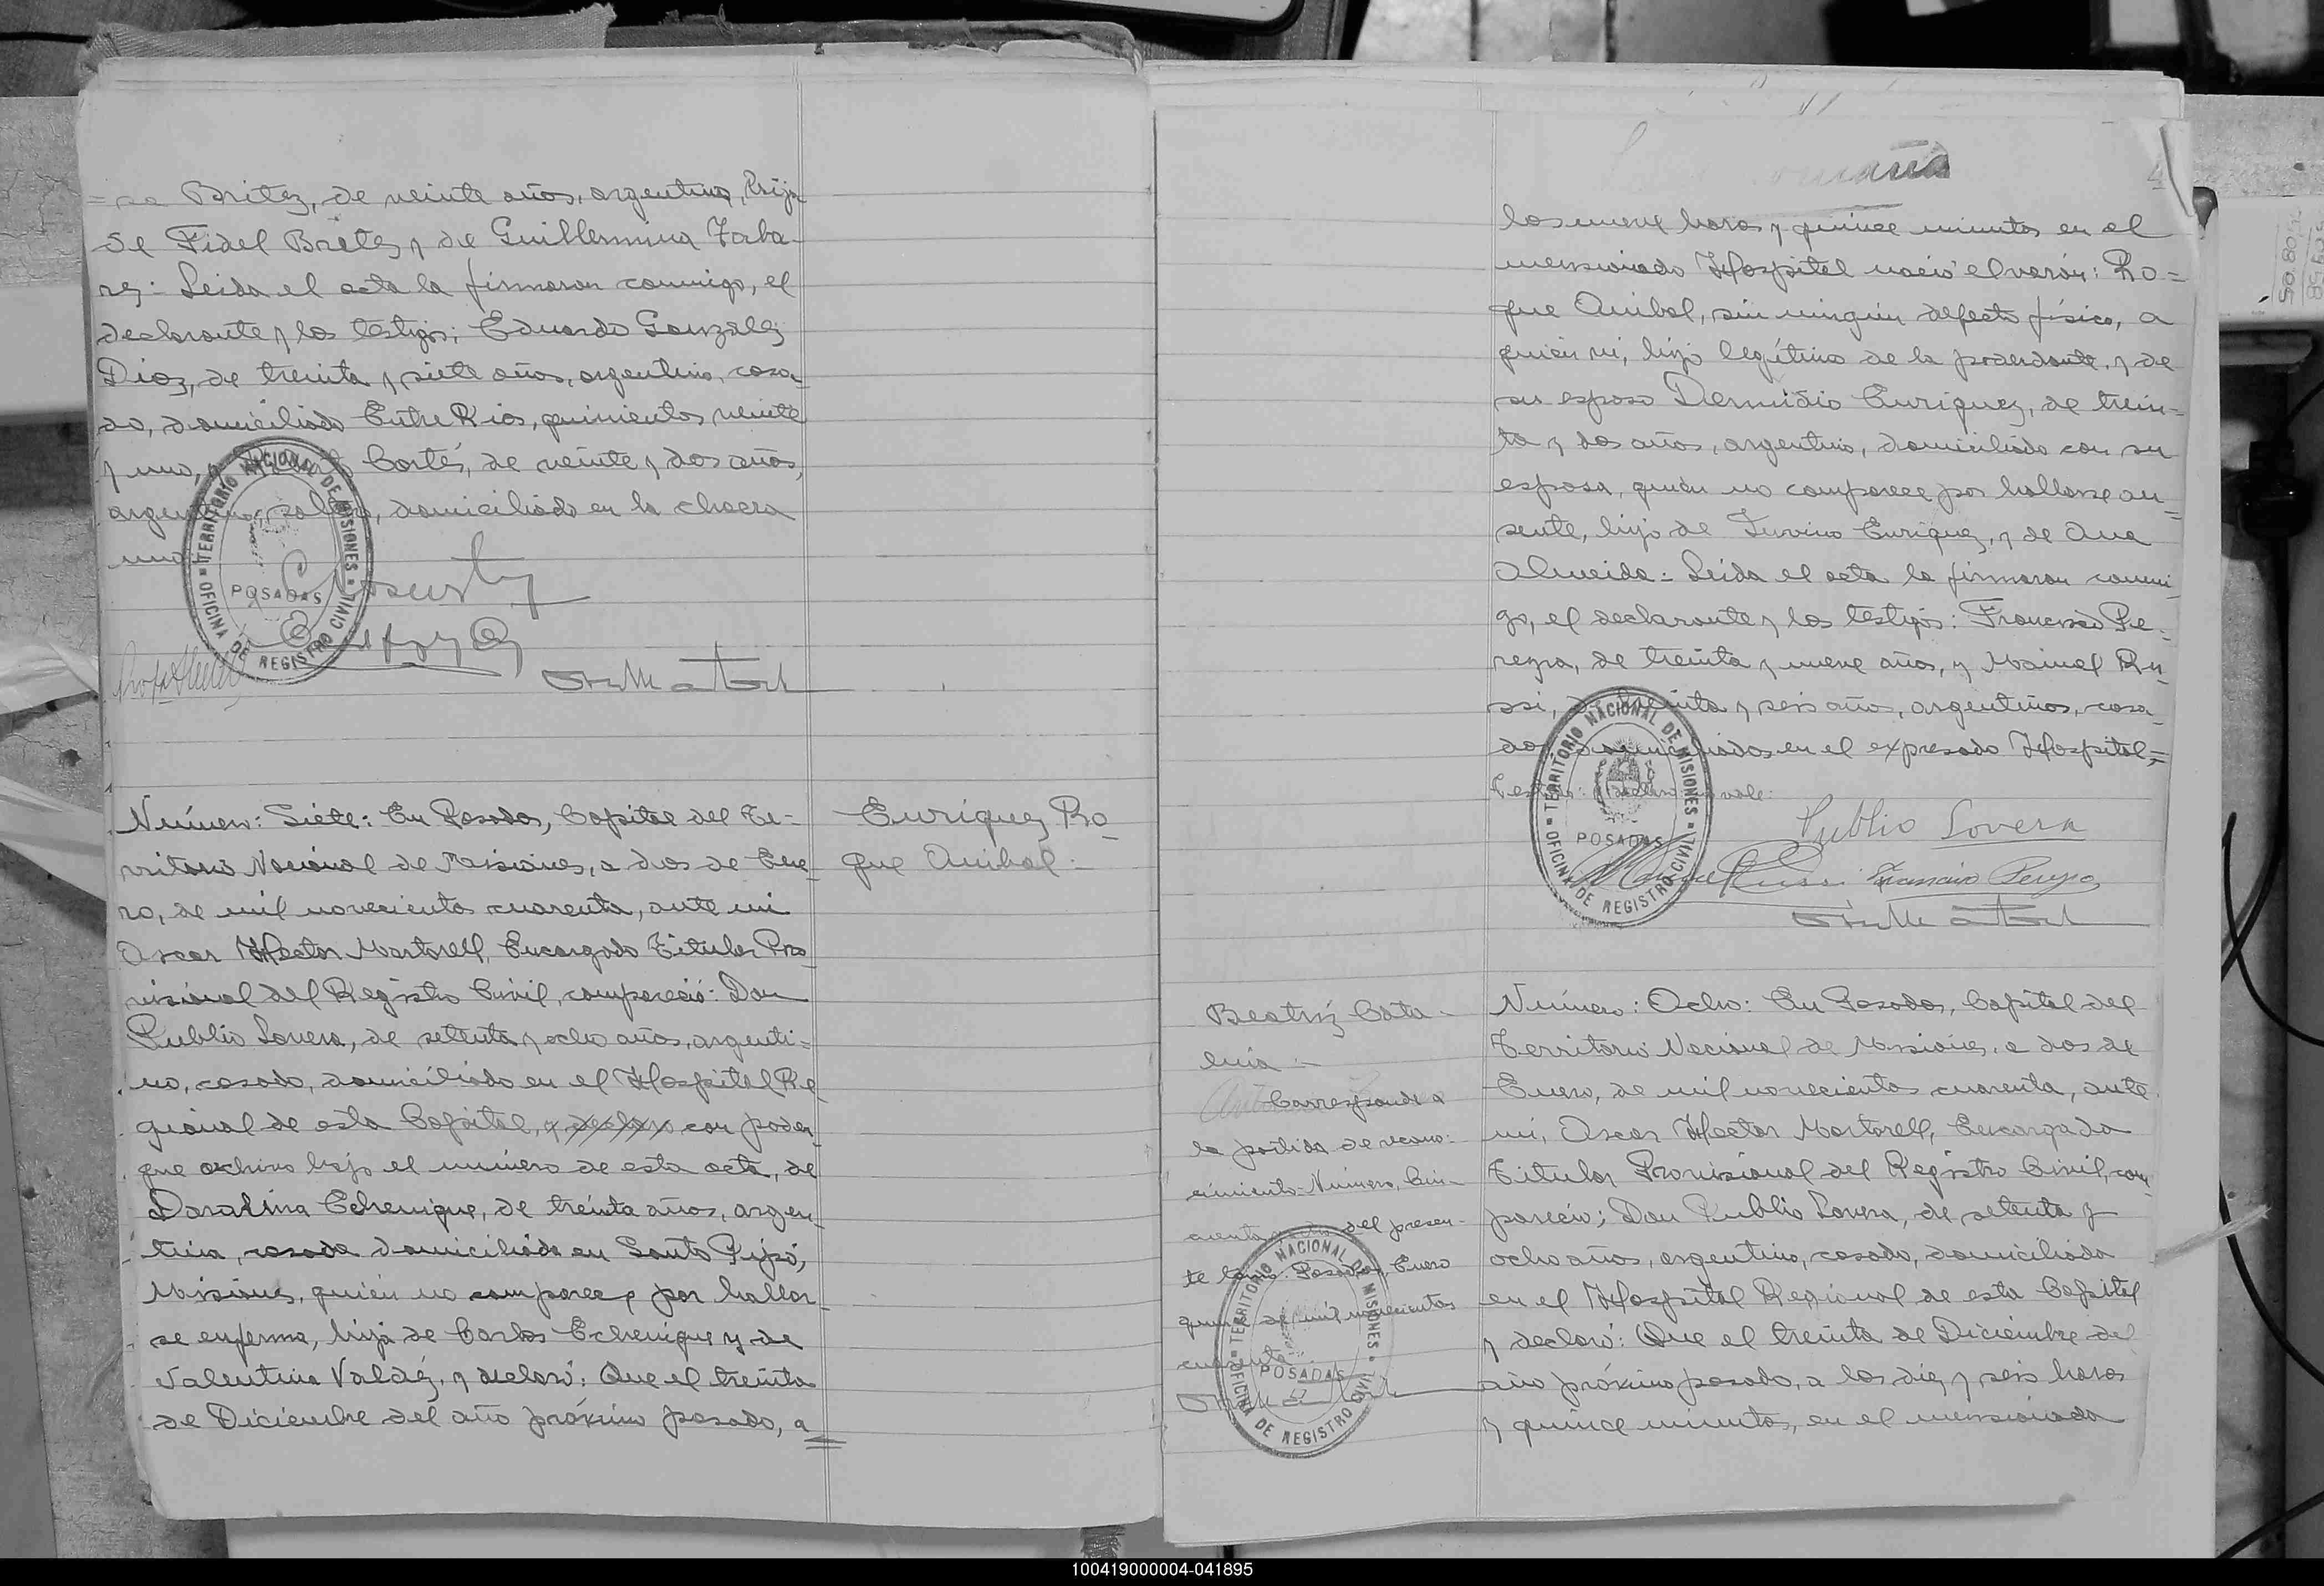 =sa Britez, de veinte años, argentina, hija
de Fidel Britez y de Guillermina Taba-
rez: Leida el acta la firmaron conmigo, el
declarante y los testigos; Eduardo González
Díaz, de treinta y siete años, argentino, casa-
do, domiciliado Entre Rios, quinientos veinte
y uno, y Cortés, de veinte y dos años,
argentino, soltero, domiciliado en la chacra
uno
TERRITORIO NACIONAL DE MISIONES
POSADAS
OFICINA DE REGISTRO CIVIL
Número: Siete: En Posadas, Capital del Te-
rritorio Nacional de Misiones, a dos de Ene-
ro, de mil novecientos cuarenta, ante mi
Oscar Hector Martorell, Encargado Titular Pro-
visional del Registro Civil, compareció: Don
Publio Lovera, de setenta y ocho años, argenti=
no, casado, domiciliado en el Hospital Re-
gional de esta Capital, y declaro con poder
que archivo bajo el número de esta acta, de
Doralina Echenique, de treinta años, argen-
tina, casada domiciliada en Santo Pipó,
Misiones, quién no comparece por hallar-
se enferma, hija de Carlos Echenique y de
Valentina Valdéz, y declaró: Que el treinta
de Diciembre del año próximo pasado, a
Enriquez Ro-
que Anibal:
las nueve horas y quince minutos en el
mensionado Hospital nació el varón: Ro=
que Anibal, sin ningún defecto físico, a
quién vi, hijo legítimo de la poderdante, y de
su esposo Dermidio Enriquez, de trein-
ta y dos años, argentino, domiciliado con su
esposa, quién no comparece por hallarse au-
sente, hijo de Enriquez, y de Ana
Almeida: Leida el acta la firmaron conmi-
go, el declarante y los testigos: Francisco Pe-
reyra, de treinta y nueve años, y Manuel Ru-
ssi, de treinta y seis años, argentinos, casa-
dos, domiciliados en el expresado Hospital,=
Testado: y declaro: no vale:
TERRITORIO NACIONAL DE MISIONES
POSADAS
OFICINA DE REGISTRO CIVIL
Publio Lovera
Manuel Russi Francisco Pereyra
Beatríz Cata-
lina:-
Corresponde a
la partida de recono-
cimiento-Número, Cin-
cuenta del presen-
te tomo: Posadas, Enero
quince de mil novecientos
cuarenta
TERRITORIO NACIONAL DE MISIONES
POSADAS
OFICINA DE REGISTRO CIVIL
Número: Ocho: En Posadas, Capital del
Territorio Nacional de Misiones, a dos de
Enero, de mil novecientos cuarenta, ante
mi, Oscar Hector Martorell, Encargado
Titular Provisional del Registro Civil, com-
pareció; Don Publio Lovera, de setenta y
ocho años, argentino, casado, domiciliado
en el Hospital Regional de esta Capital
y declaró: Que el treinta de Diciembre del
año próximo pasado, a las diez y seis horas
y quince minutos, en el mensionado
100419000004-041895